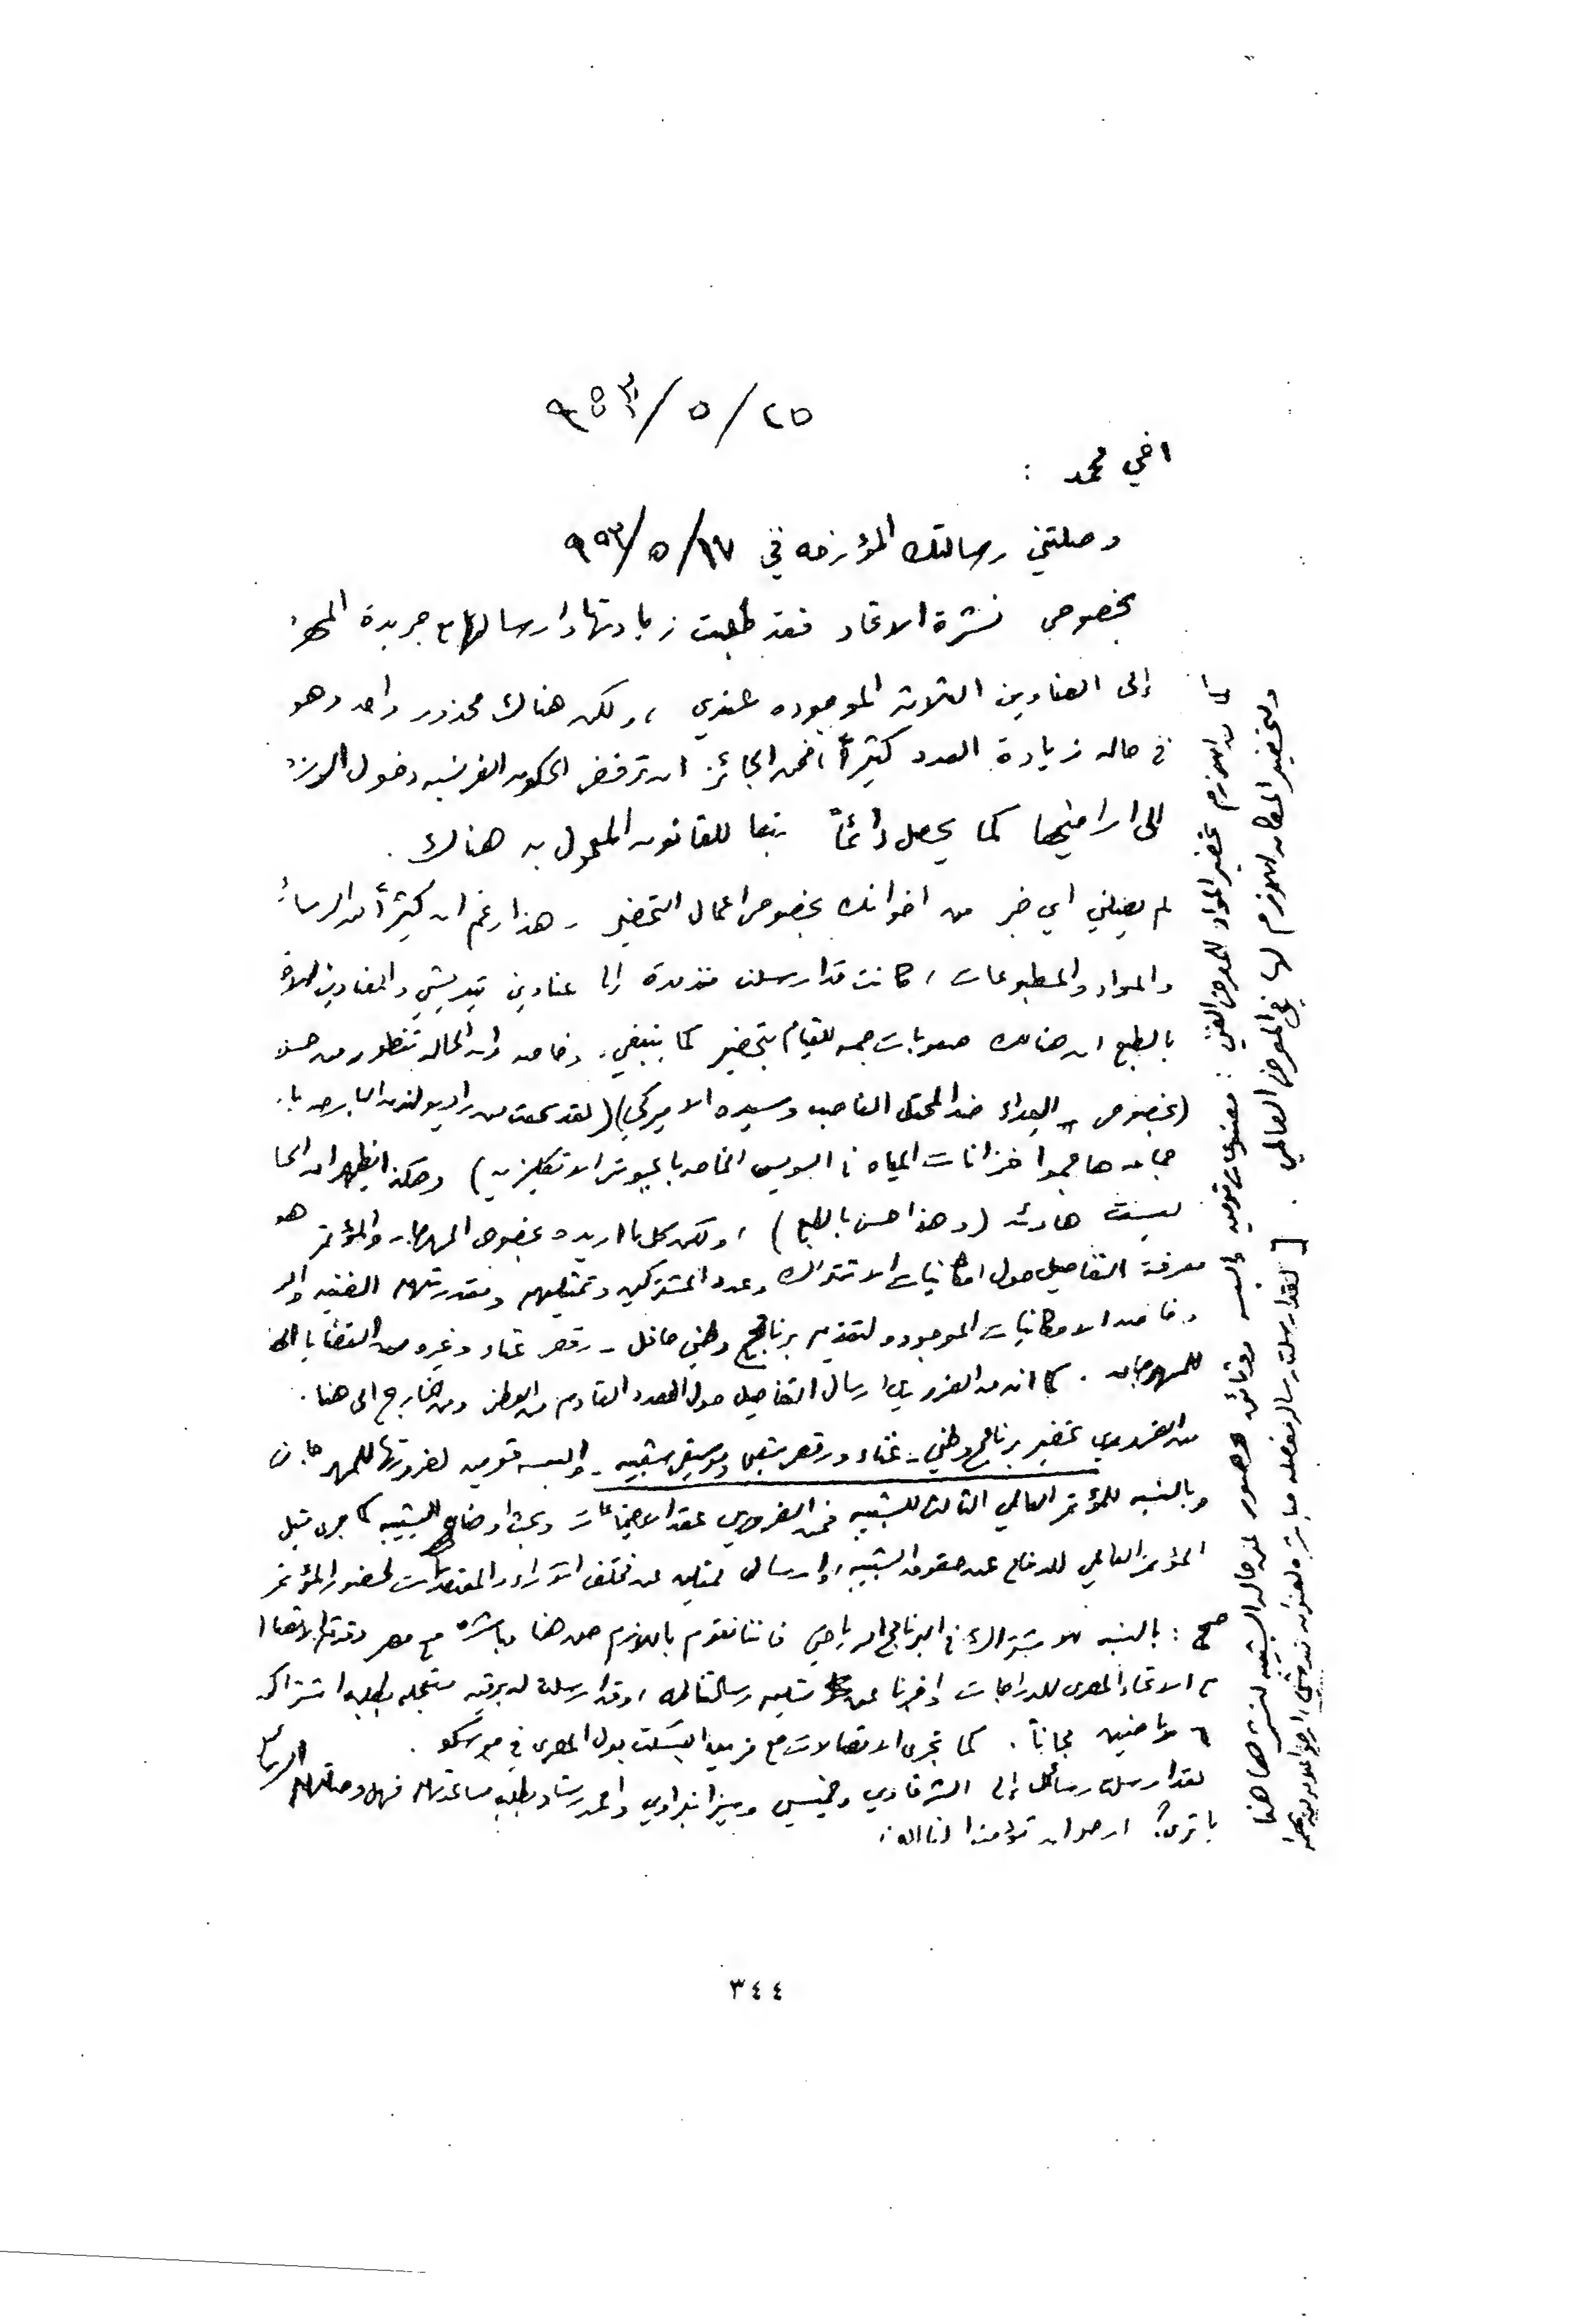 ٢٥/ ٥/ ٩٥٣
اخي محمد :
وصلتني رسالتك المؤرخه في ١٧/ ٥/ ٩٥٣
بخصوص نشرة الاتحاد فقد طلبت زيادتها وارسالها مع جريدة
إلى العناوين الثلاثه الموجوده عندي ، ولكن هناك محذور واحد وهو
في حاله زيادة العدد كثيرًا ، فمن الجائز ان ترفض الحكومه الفرنسيه دخول
الى اراضيها كما يحصل دائمًا تبعا للقانون المعمول به هناك .
لم يصلني اي خبر من اخوانك بخصوص اعمال التحضير - هذا رغم ان كثيرًا من
والمواد والمطبوعات ، كانت قد ارسلت منذ مدة إلى عناوين والعناوين
بالطبع ان هناك صعوبات جمه للقيام بتحضير كما ينبغي ، وخاصه وان الحاله تتطور من
(بخصوص العداء ضد المحتل الغاصب وسيده الاميركي) (لقد سمعت من راديو لندن البارحه
جماعه هاجموا خزانات المياه في السويس الخاصه بالجيوش الانكليزيه) وهكذا يظهر ان
ليست هادئه (وهذا حسن بالطبع) ، ولكن كل ما اريده بخصوص المهرجان والمؤتمر هو
معرفة التفاصيل حول امكانيات الاشتراك وعدد المشتركين وتمثيلهم ومقدرتهم الفنيه
وخاصه الامكانيات الموجوده لتقديم برنامج وطني حافل - رقص غناء وغيره من القضايا
للمهرجان . كما انه من الضروري ارسال التفاصيل حول العدد القادم من الوطن ومن الخارج الى هنا .
من الضروري تحضير برنامج وطني - غناء ورقص شعبي وموسيقى شعبيه - والبسه قوميه لضرورتها للمهرجان
وبالنسبه للمؤتمر العالمي الثالث للشبيبه فمن الضروري عقد الاجتماعات وبحث اوضاع الشبيبه كما جرى قبل
المؤتمر العالمي للدفاع عن حقوق الشبيبه ، وارسال ممثلين عن مختلف الآراء والمعتقدات لحضور المؤتمر
صح : بالنسبه للاشتراك في البرنامج الرياضي فاننا نقوم باللازم من هنا مباشره مع مصر وقد تم الاتصال
مع الاتحاد المصري للدراجات واخبرنا عن تسلمه رسالتنا له ، وقد ارسلت له برقيه مستعجله بطلب اشتراك
٦ رياضيين مجانًا . كما تجري الاتصالات مع فريق البسكت بول المصري في موسكو .
لقد ارسلت رسائل إلى الشرقاوي وخميس وميزا نبراوي واحمد رشاد بطلب مساعدتهم فهل وصلتهم الرسائل
يا ترى؟ ارجو ان
كما من اللازم تحضير المواد للمعرض الفني : مصنوعات قوميه والبسه ووثائق وصور عن حاله الشبيبه لنشرها هنا
ولتحضير المكان اللازم لها في المعرض العالمي .
[لقد ارسلت رسالة مفصله مباشرة لعنوان
٣٤٤